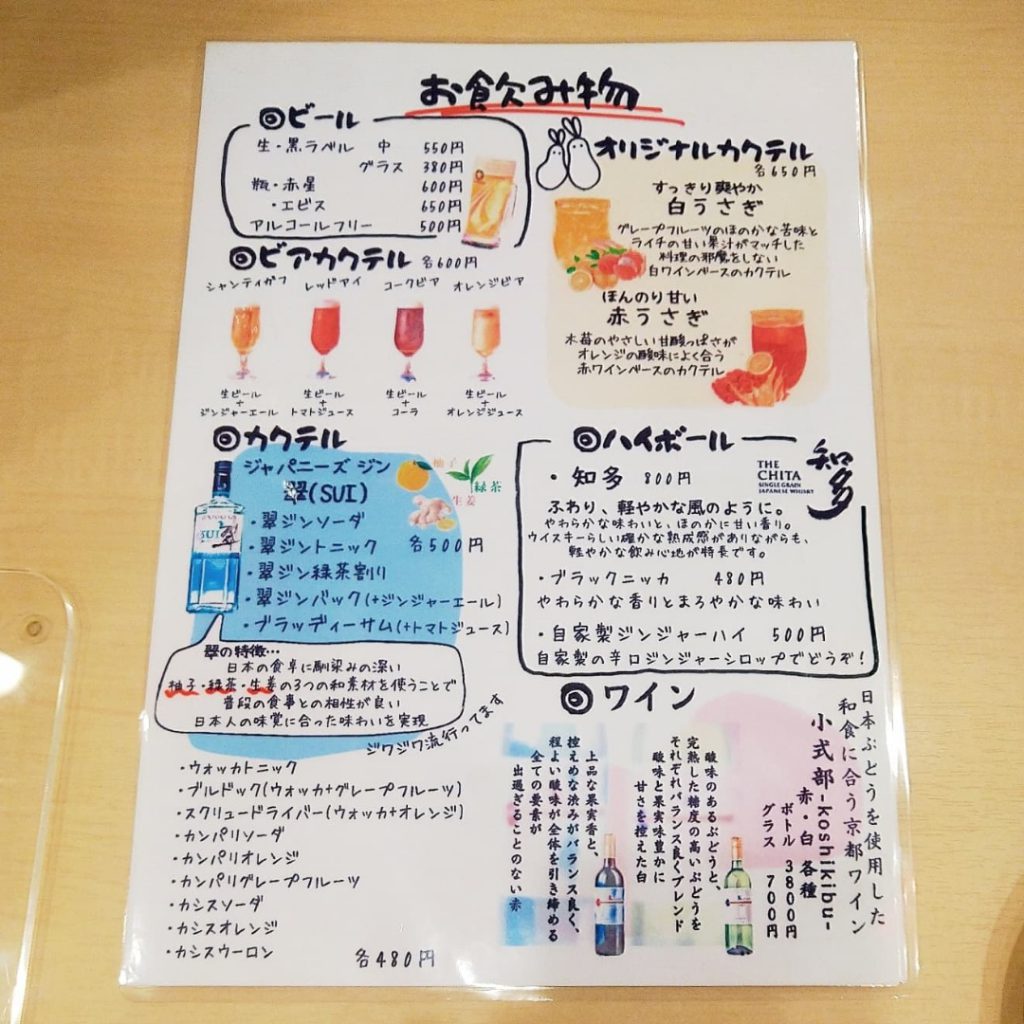 お飲み物
◎ビール
生・黒ラベル 中 550円
グラス 380円
瓶・赤星 600円
・エビス 650円
アルコールフリー 500円
◎ビアカクテル 各600円
シャンディガフ レッドアイ コークビア オレンジビア
生ビール + ジンジャーエール
生ビール + トマトジュース
生ビール + コーラ
生ビール + オレンジジュース
オリジナルカクテル
各650円
すっきり爽やか
白うさぎ
グレープフルーツのほのかな苦味と
ライチの甘い果汁がマッチした
料理の邪魔をしない
白ワインベースのカクテル
ほんのり甘い
赤うさぎ
木苺のやさしい甘酸っぱさが
オレンジの酸味によく合う
赤ワインベースのカクテル
◎カクテル
ジャパニーズ ジン
翠(SUI)
柚子
緑茶
生姜
SUI 翠
・翠ジンソーダ
・翠ジントニック 各500円
・翠ジン緑茶割り
・翠ジンバック(+ジンジャーエール)
・ブラッディーサム(+トマトジュース)
翠の特徴…
日本の食卓に馴染みの深い
柚子・緑茶・生姜の3つの和素材を使うことで
普段の食事との相性が良い
日本人の味覚に合った味わいを実現
ジワジワ流行ってます
・ウォッカトニック
・ブルドック(ウォッカ+グレープフルーツ)
・スクリュードライバー(ウォッカ+オレンジ)
・カンパリソーダ
・カンパリオレンジ
・カンパリグレープフルーツ
・カシスソーダ
・カシスオレンジ
・カシスウーロン
各480円
◎ハイボール
・知多 800円
THE
CHITA
SINGLE GRAIN
JAPANESE WHISKY
知多
ふわり、軽やかな風のように。
やわらかな味わいと、ほのかに甘い香り。
ウイスキーらしい確かな熟成感がありながらも、
軽やかな飲み心地が特長です。
・ブラックニッカ 480円
やわらかな香りとまろやかな味わい
・自家製ジンジャーハイ 500円
自家製の辛口ジンジャーシロップでどうぞ!
◎ワイン
日本ぶどうを使用した
和食に合う京都ワイン
小式部-koshikibu-
赤・白 各種
ボトル 3800円
グラス 700円
酸味のあるぶどうと、
完熟した糖度の高いぶどうを
それぞれバランス良くブレンド
酸味と果実味豊かに
甘さを控えた白
上品な果実香と、
控えめな渋みがバランス良く、
程よい酸味が全体を引き締める
全ての要素が
出過ぎることのない赤